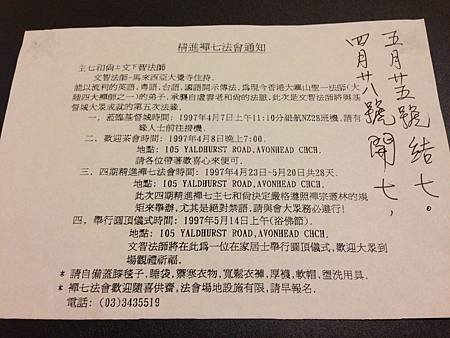 精進禪七法會通知
主七和尚上文下智法師
文智法師-馬來西亞大覺寺住持.
能以流利的英語,粵語,台語,國語開示傳法,為現今香港大嶼山聖一法師(大
陸四大禪師之一)的弟子,承襲自虛雲老和尚的法脈.此次是文智法師將與基
督城大眾或就的第五次法緣.
一. 蒞臨基督城時間: 1997年4月7日上午11:10分紐航NZ28班機,請有
緣人士前往接機.
二. 歡迎茶會時間: 1997年4月8日晚上7:00.
地點: 105 YALDHURST ROAD,AVONHEAD CHCH.
請各位帶著歡喜心來便可.
三. 四期精進禪七法會時間: 1997年4月23日-5月20日共28天.
地點: 105 YALDHURST ROAD,AVONHEAD CHCH.
此次四期精進禪七主七和尚決定嚴格遵照禪宗叢林的規
矩來舉辦,尤其是絕對禁語.請與會大眾務必遵行!
四. 舉行圓頂儀式時間: 1997年5月14日上午(浴佛節).
地點: 105 YALDHURST ROAD,AVONHEAD CHCH.
文智法師將在此為一位在家居士舉行圓頂儀式,歡迎大眾到
場觀禮祈福.
* 請自備蓋膝毯子.睡袋,禦寒衣物,寬鬆衣褲,厚襪,軟帽.盥洗用具.
* 禪七法會歡迎隨喜供齋,法會場地設施有限,請早報名.
電話: (03)3435519
五月廿五號結七。
四月廿八號開七,